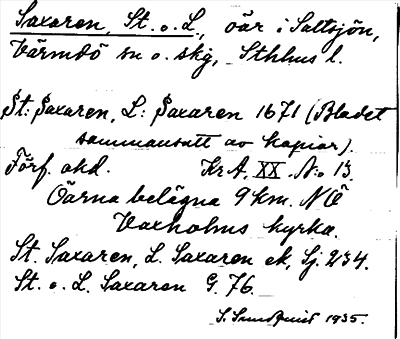 Saxaren, St. o. L., öar i Saltsjön,
Värmdö sn o. skg, Sthlms l.
St: Saxaren, L: Saxaren 1671 (Bladet
sammansatt av kopior).
Förf. okd. Kr A. XX. N:o 13.
Öarna belägna 9 km. NÖ
Vaxholms kyrka.
St. Saxaren, L. Saxaren ek, Sj. 234.
St. o. L. Saxaren G. 76.
S. Sundquist 1935.